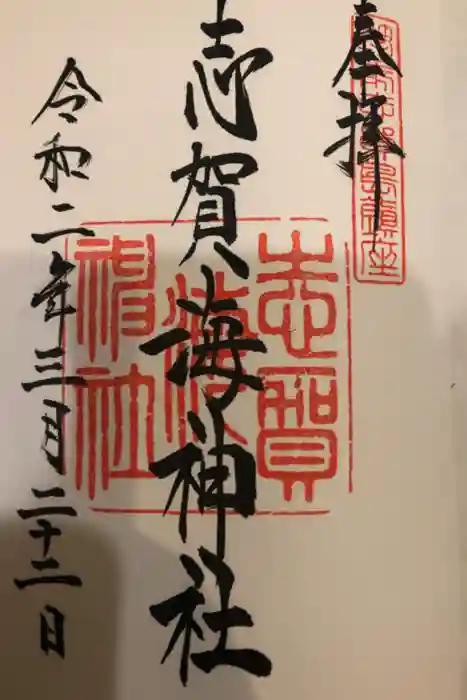 奉拝
志賀海神社
令和二年三月二十二日
志賀
海
神社